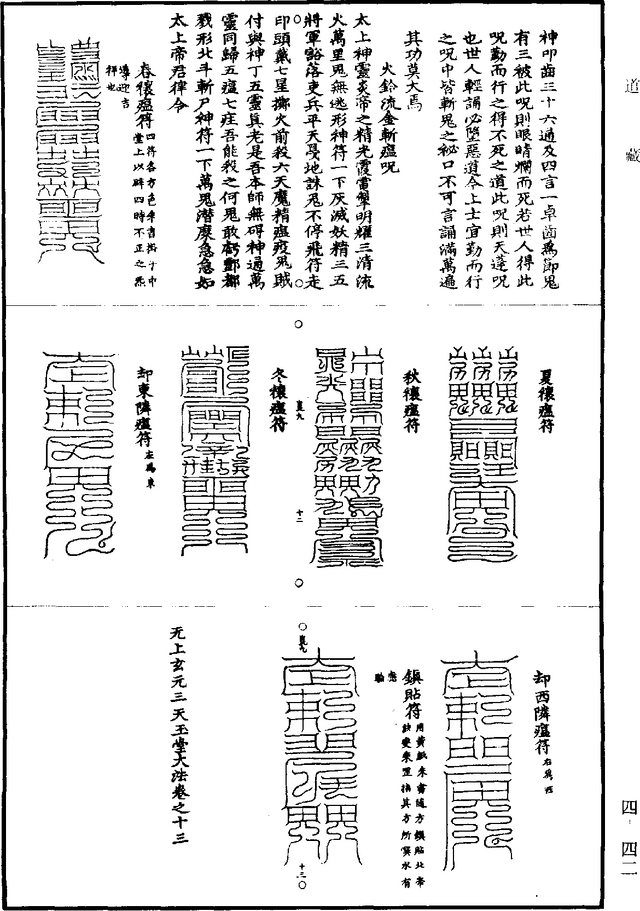 道藏
神叩齒三十六通及四言一卓齒為節鬼
有三被此呪則眼睛爛而死若世人得此
呪勤而行之得不死之道此呪則天蓬呪
也世人輕誦必墮惡道令上士宜勤而行
之呪中皆斬鬼之秘口不可言誦滿萬遍
其功莫大焉
火鈴流金斬瘟呪
太上神靈炎帝之精光霞霄擊明耀三清流
火萬里鬼無逃形神符一下灰滅妖精三五
將軍豁落吏兵平天戛地誅鬼不停飛符走
印頭戴七星擲火前殺六天魔精瘟疫鬼賊
付與神丁五靈真老是吾本師無碍神通萬
靈同歸五瘟七疰吾能殺之何鬼敢
戮形北斗斬尸神符一下萬鬼潛糜急急如
太上帝君律令
春禳瘟符四符各方色朱書掛于中
堂上以辟四時不正之炁
導迎吉
祥也
夏禳瘟符
秋禳瘟符
真九
十二
冬禳瘟符
却東隣瘟符左為東
却西隣瘟符右為西
鎮貼符用黃紙朱書隨方鎮貼北帝
真九
十三
无上玄元三天玉堂大法卷之十三
四·四二